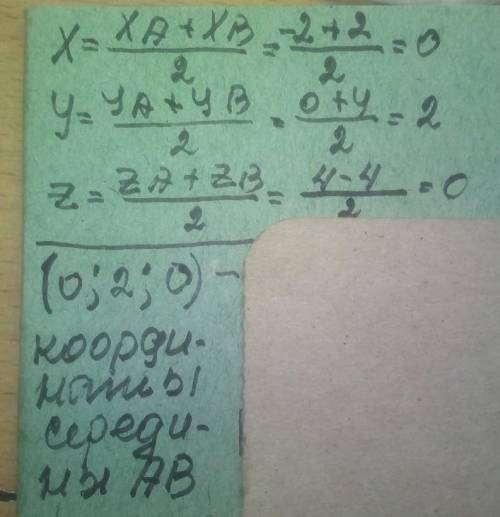 X = XA + XB / 2 = -2 + 2 / 2 = 0
y = yA + yB / 2 = 0 + 4 / 2 = 2
Z = ZA + ZB / 2 = 4 - 4 / 2 = 0
(0; 2; 0) -
коорди-
наты
середи-
ны AB